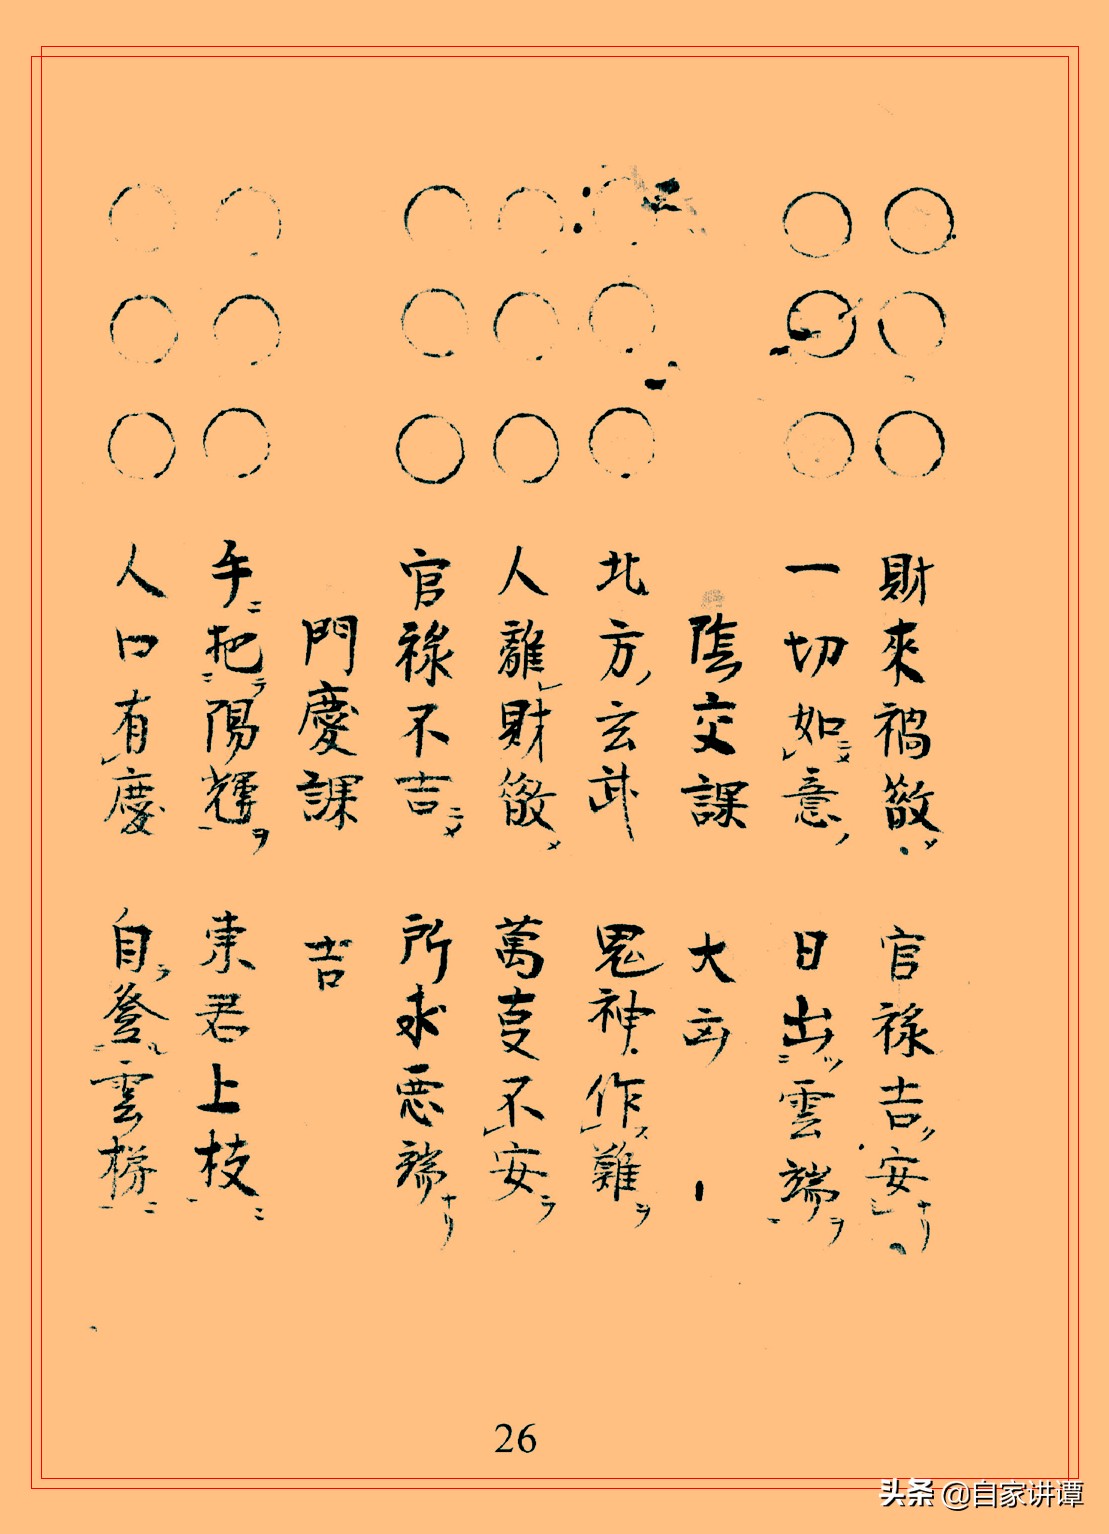 財來禍散 官祿吉安ナリ
一切如意 日出雲端ヲ
陰交課 大凶
北方玄武 鬼神作難ヲ
人離財散 萬事不安
官祿不吉 所求惡端ナリ
門慶課 吉
手把陽輝ヲ 東君上枝ニ
人口有慶 自登雲梯ニ
26
头条 @自家讲谭